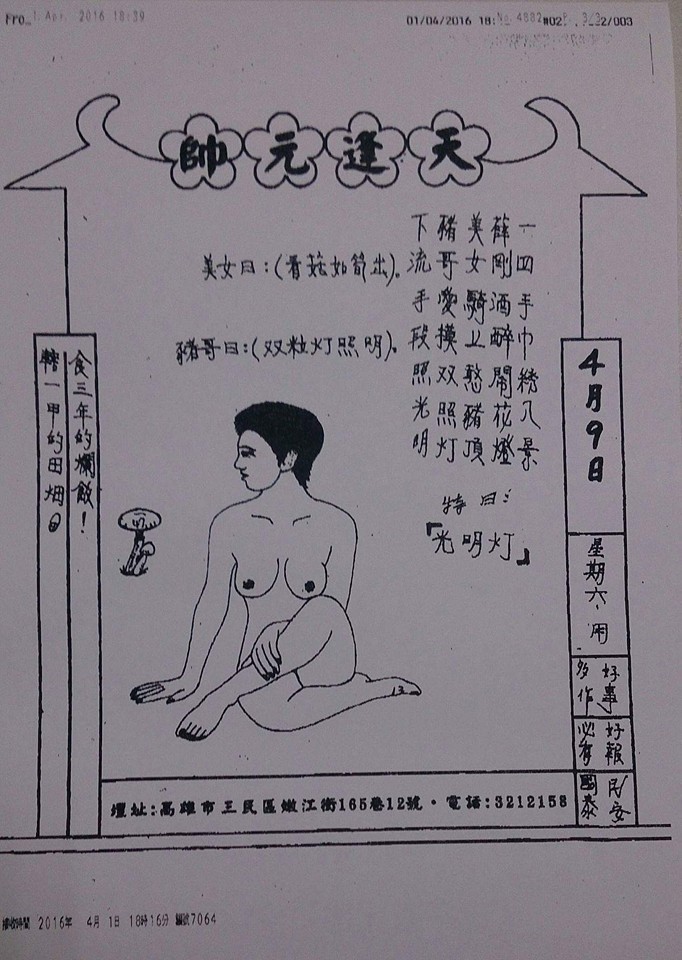 1 Apr. 2016 18:39
01/04/2016 18:
No. 4882
P. 3/3
2/003
天逢元帥
一四手巾綉八景
薛剛酒醉鬧花燈
美女騎上憨豬頂
豬哥愛摸双照灯
下流手段照光明
特曰:
『光明灯』
美女曰:(看菇如筍出)。
豬哥曰:(双粒灯照明)。
4月9日
星期六、用
好事多作
好報必有
民安國泰
食三年的爛飯!
一甲的田畑
壇址:高雄市三民區嫩江街165巷12號・電話:3212158
接收時間 2016年 4月 1日 18時16分 編號7064